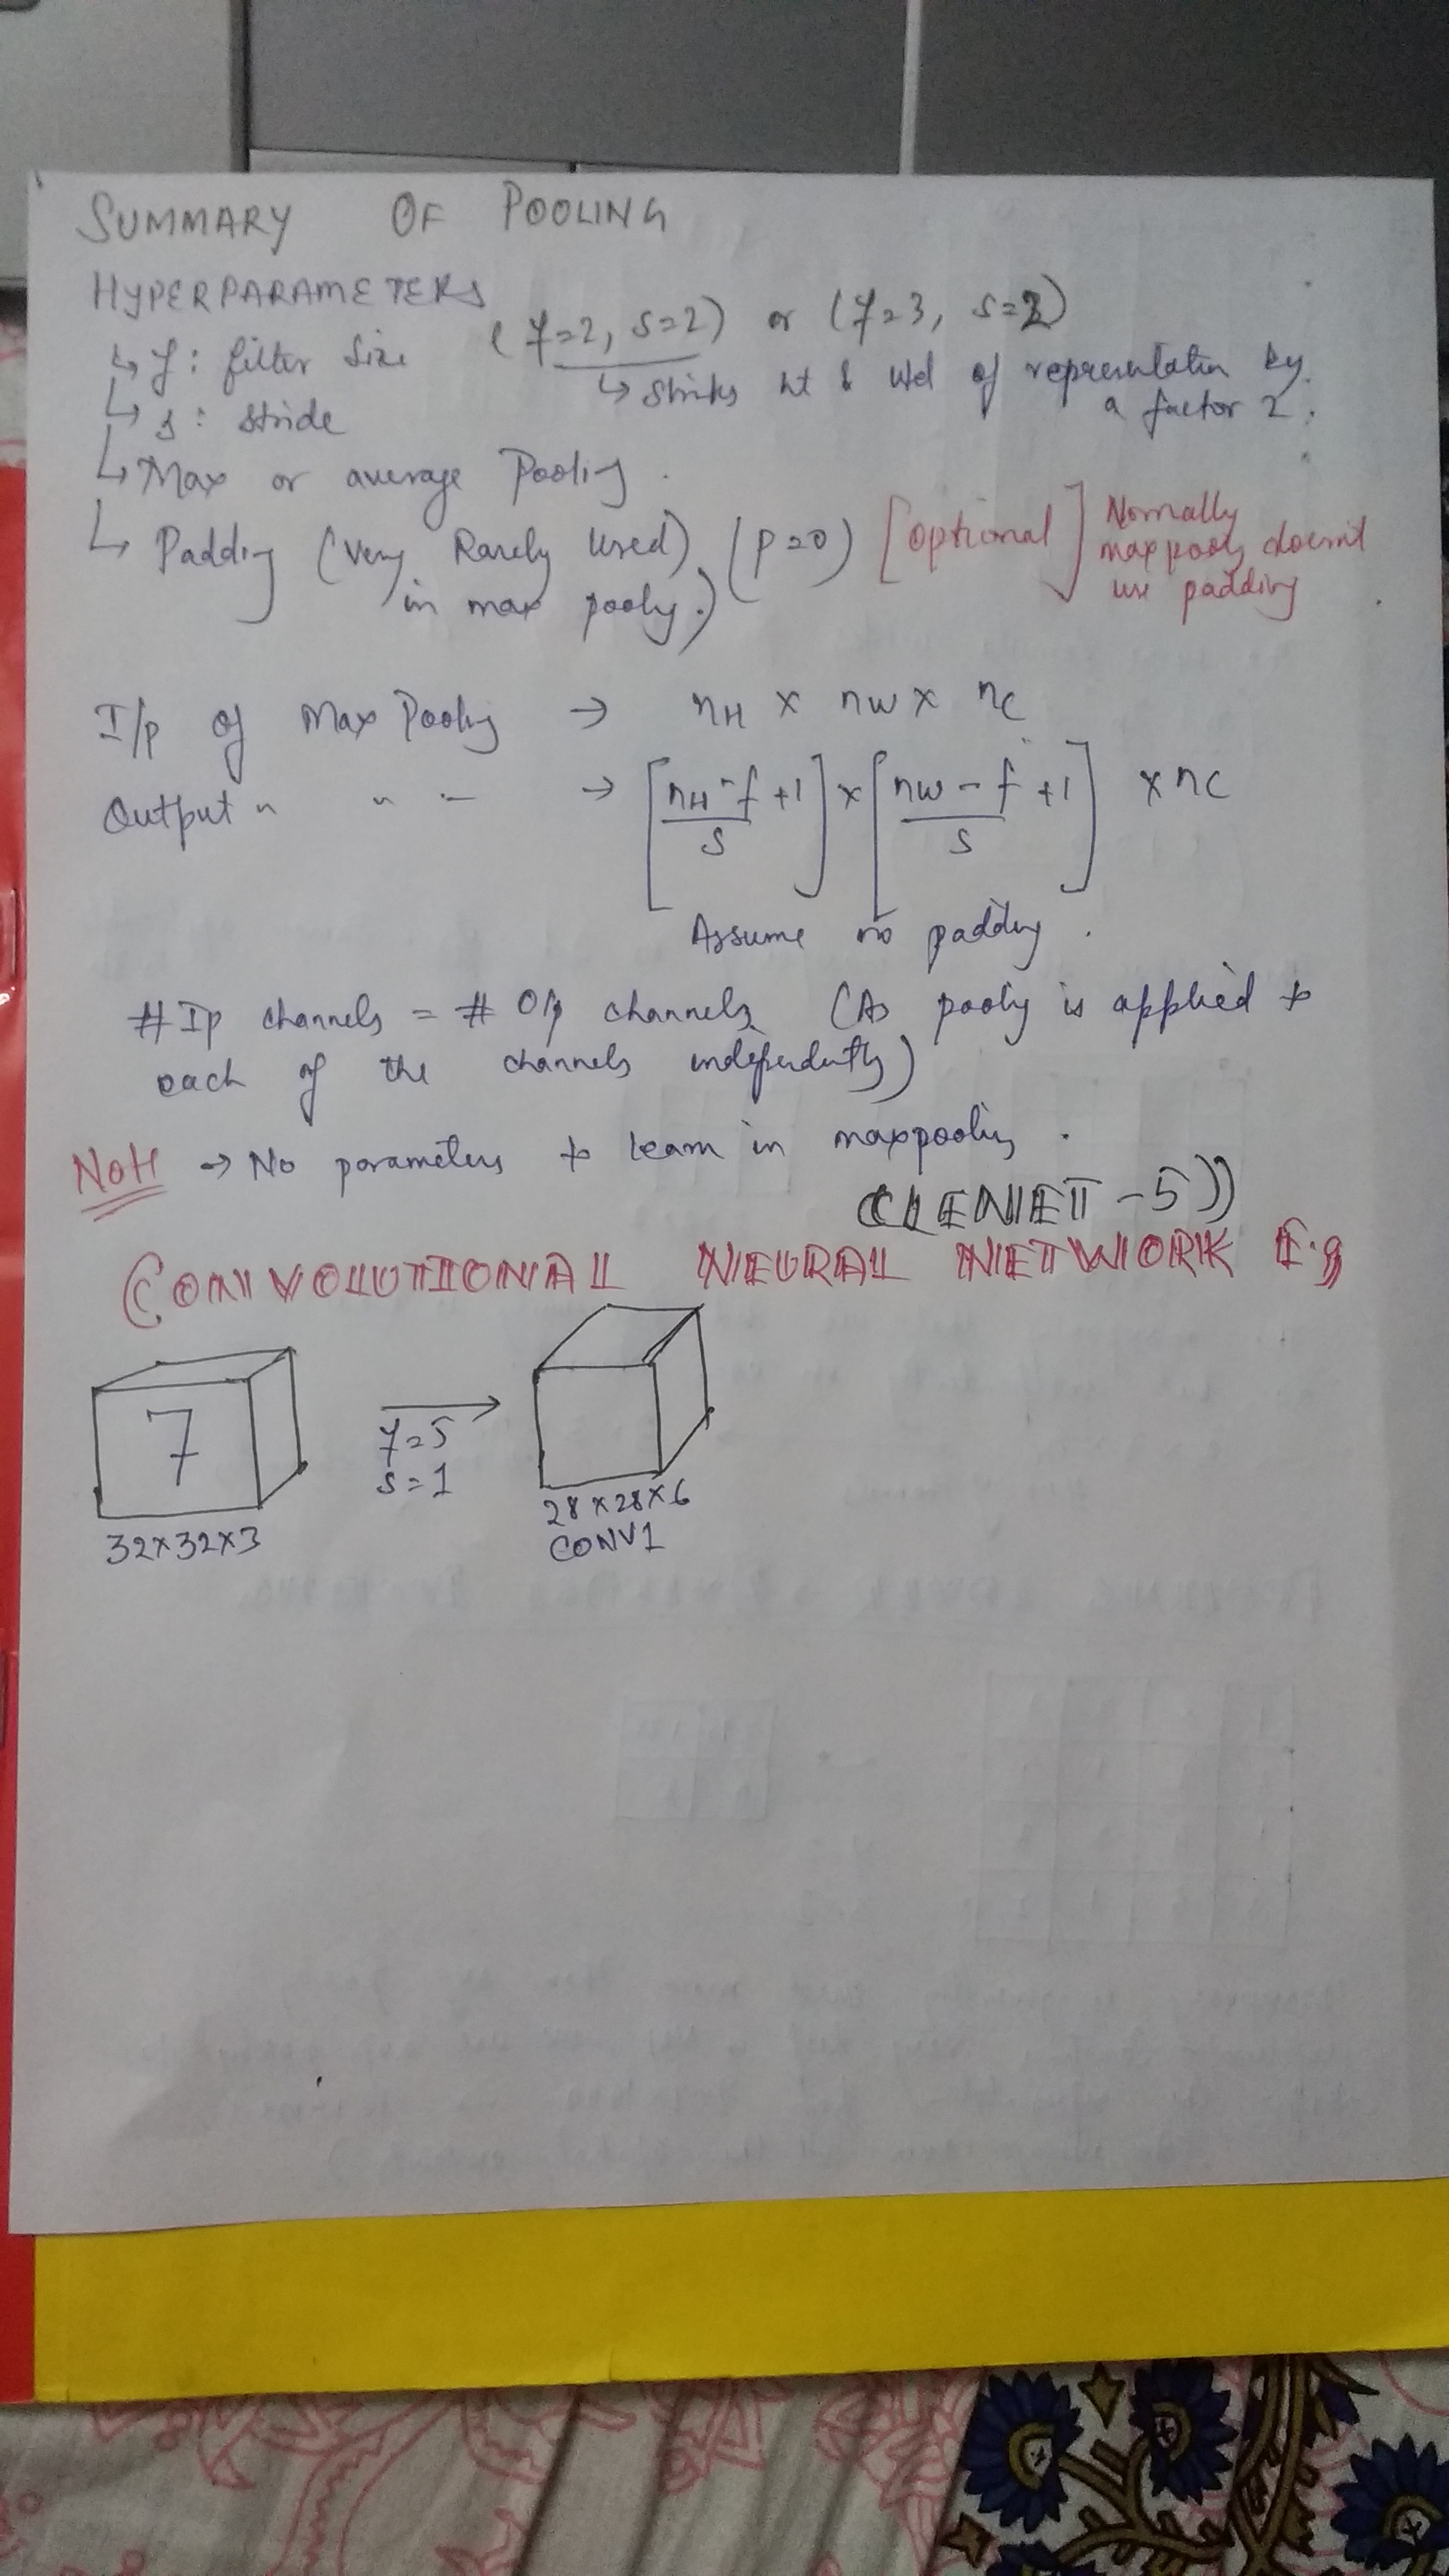 SUMMARY OF POOLING
HYPERPARAMETERS
↳ f : filter size (f=2, s=2) or (f=3, s=2)
↳ shrinks ht & wd of representation by
a factor 2.
↳ s : stride
↳ Max or average Pooling.
↳ Padding (very Rarely used) (p=0) [optional] Normally
maxpooling doesn't
use padding
in max pooling.)
I/p of Max Pooling → nH x nW x nC
Output " " " → [nH - f + 1] x [nW - f + 1] x nC
s s
Assume no padding.
# Ip channels = # O/p channels (As pooling is applied to
each of the channels independently)
Note → No parameters to learn in maxpooling.
((LENET - 5))
CONVOLUTIONAL NEURAL NETWORK E.g
7
f=5
s=1
28x28x6
32x32x3
CONV1